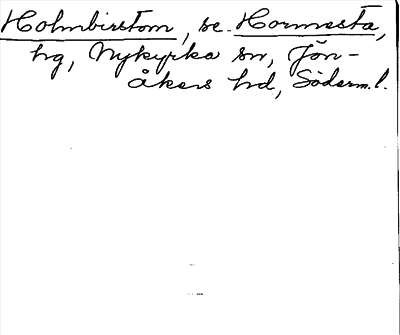 Holmbirstom, se. Hormesta,
hg, Nykyrka sn, Jön-
åkers hd, Söderm. l.